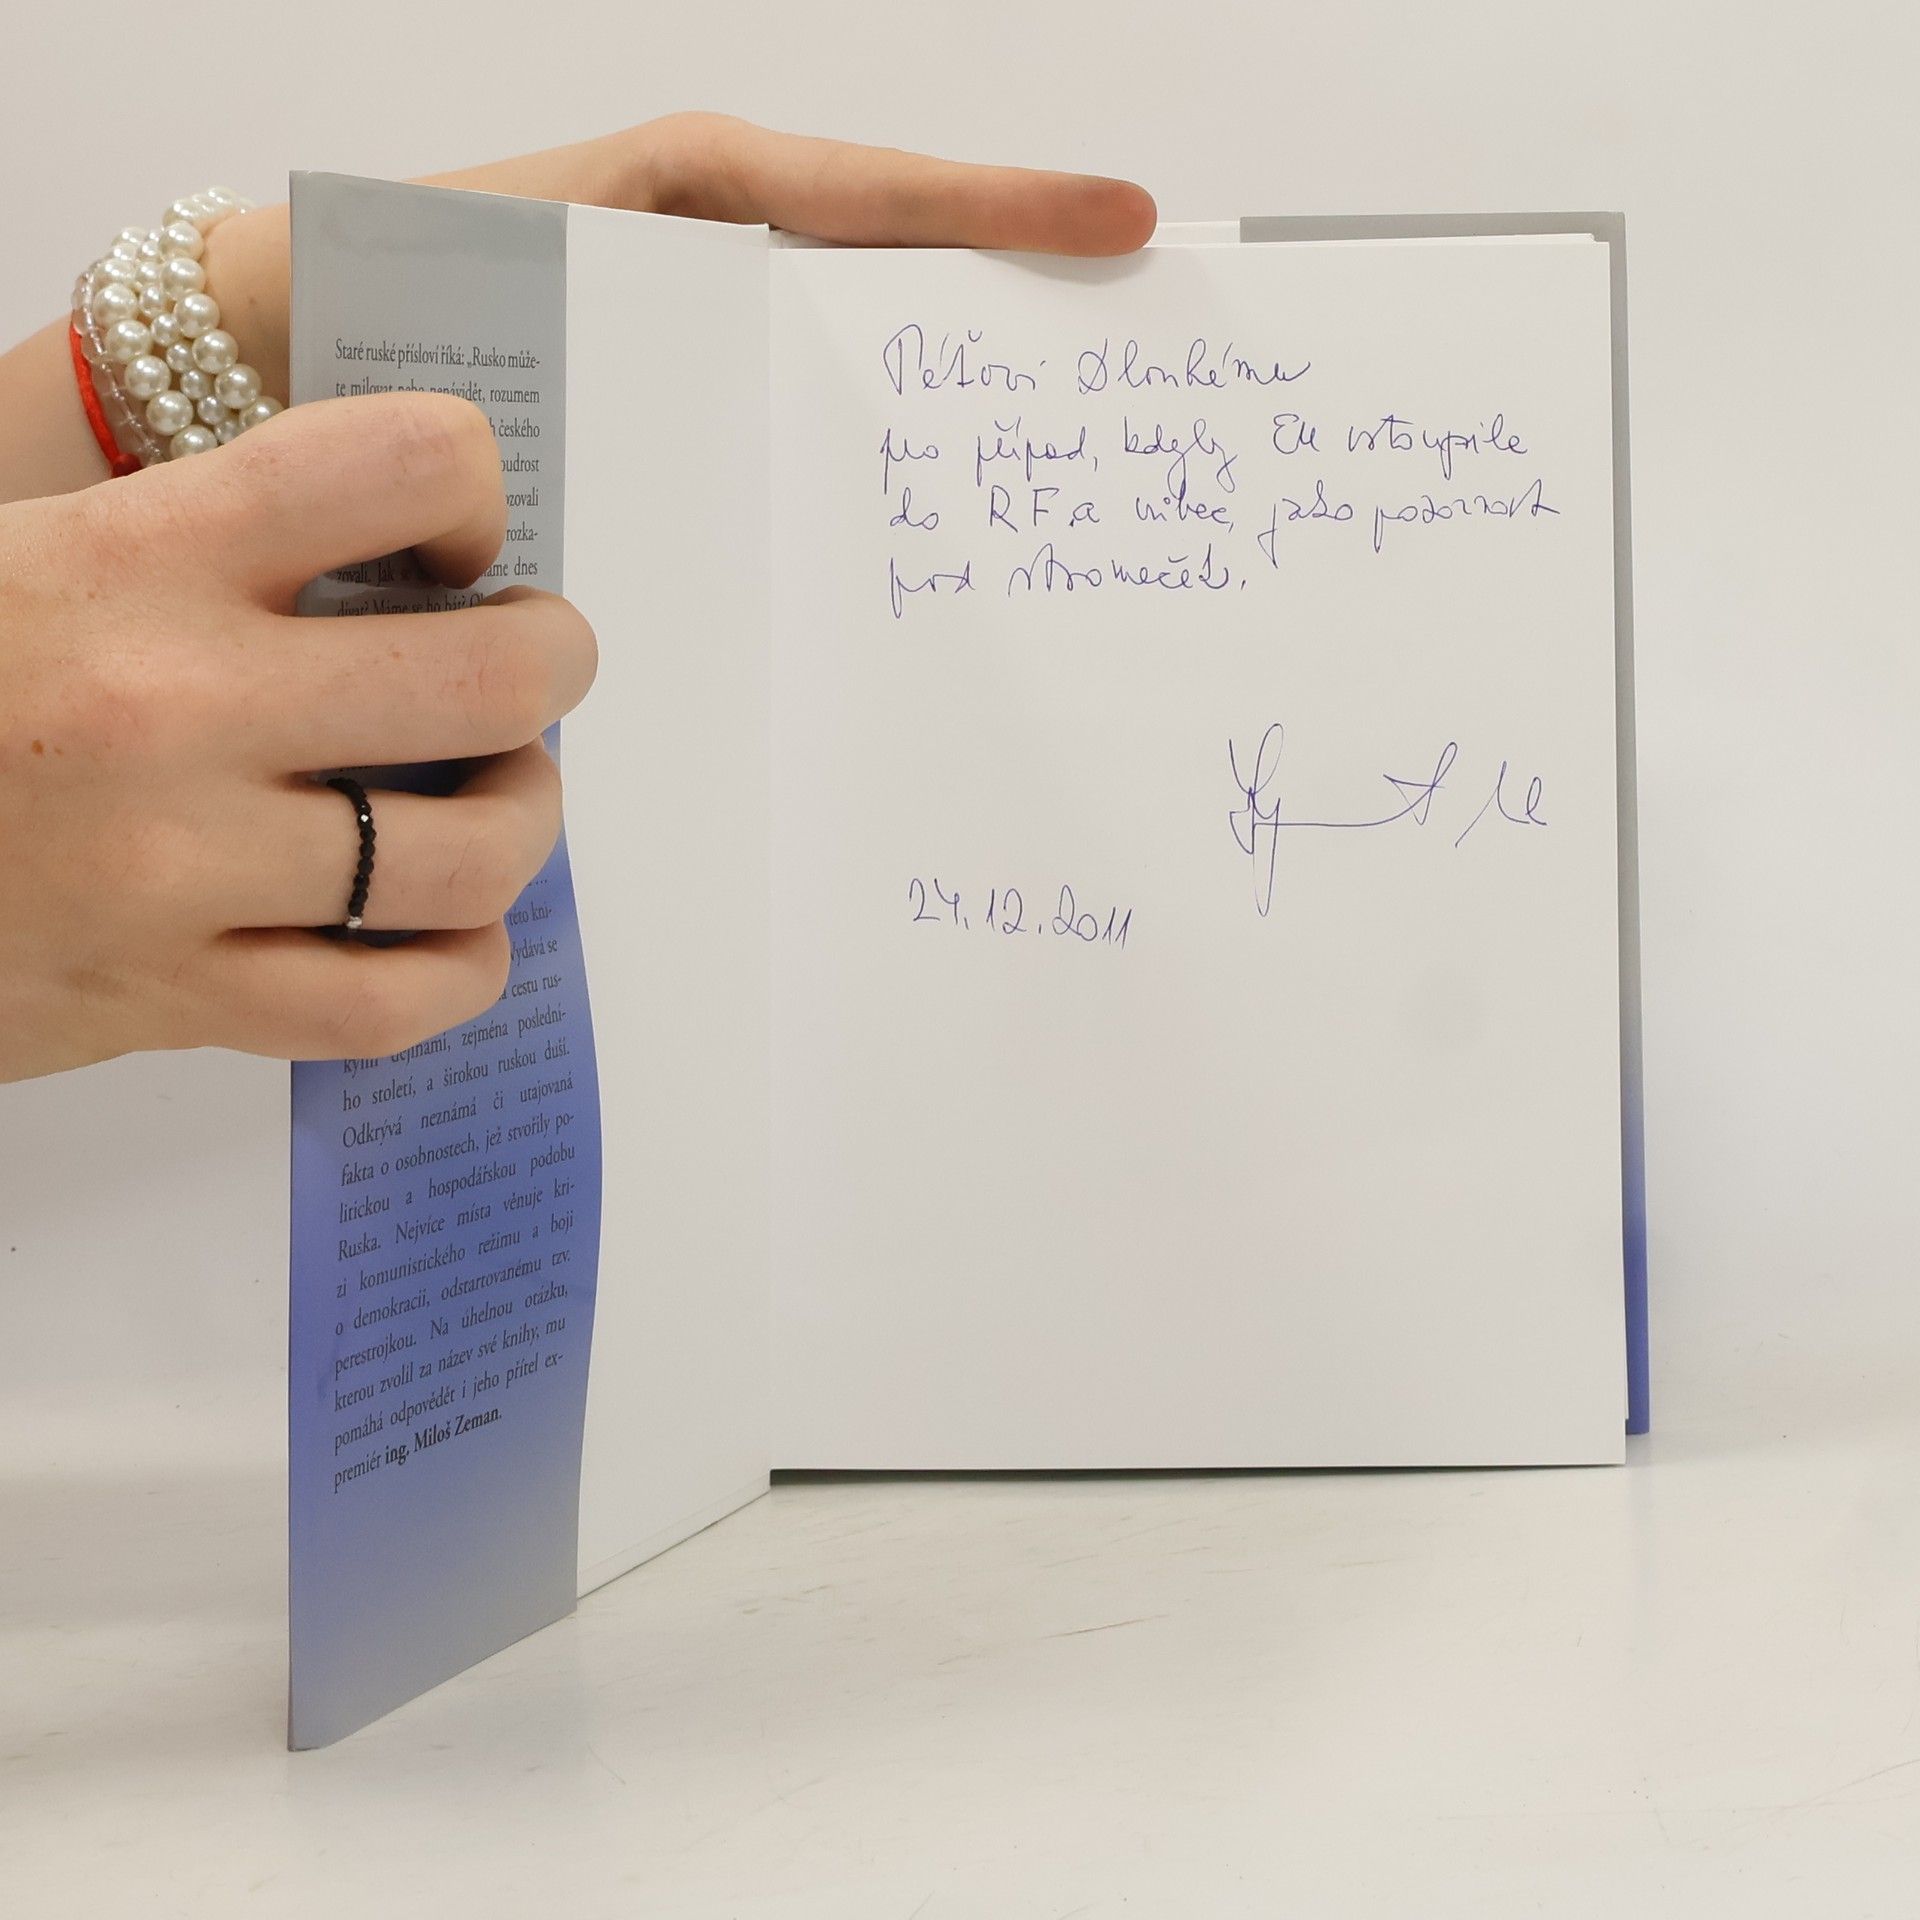 Staré ruské přísloví říká: „Rusko může-
te milovat nebo nenávidět, rozumem
českého
oudrost
ozovali
rozka-
zovali. Jak se dnes
dívat? Máme se ho bát?
této kni-
Vydává se
cestu rus-
kými dějinami, zejména poslední-
ho století, a širokou ruskou duší.
Odkrývá neznámá či utajovaná
fakta o osobnostech, jež stvořily po-
litickou a hospodářskou podobu
Ruska. Nejvíce místa věnuje kri-
zi komunistického režimu a boji
o demokracii, odstartovanému tzv.
perestrojkou. Na úhelnou otázku,
kterou zvolil za název své knihy, mu
pomáhá odpovědět i jeho přítel ex-
premiér ing. Miloš Zeman.
Péťovi Dlouhému
pro případ, kdyby EU vstoupila
do RF a vůbec, jako pozornost
pod stromeček.
24.12.2011